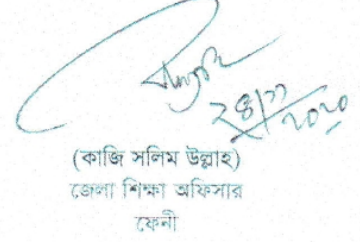 ২৪/১১/২০২০
(কাজি সলিম উল্লাহ)
জেলা শিক্ষা অফিসার
ফেনী